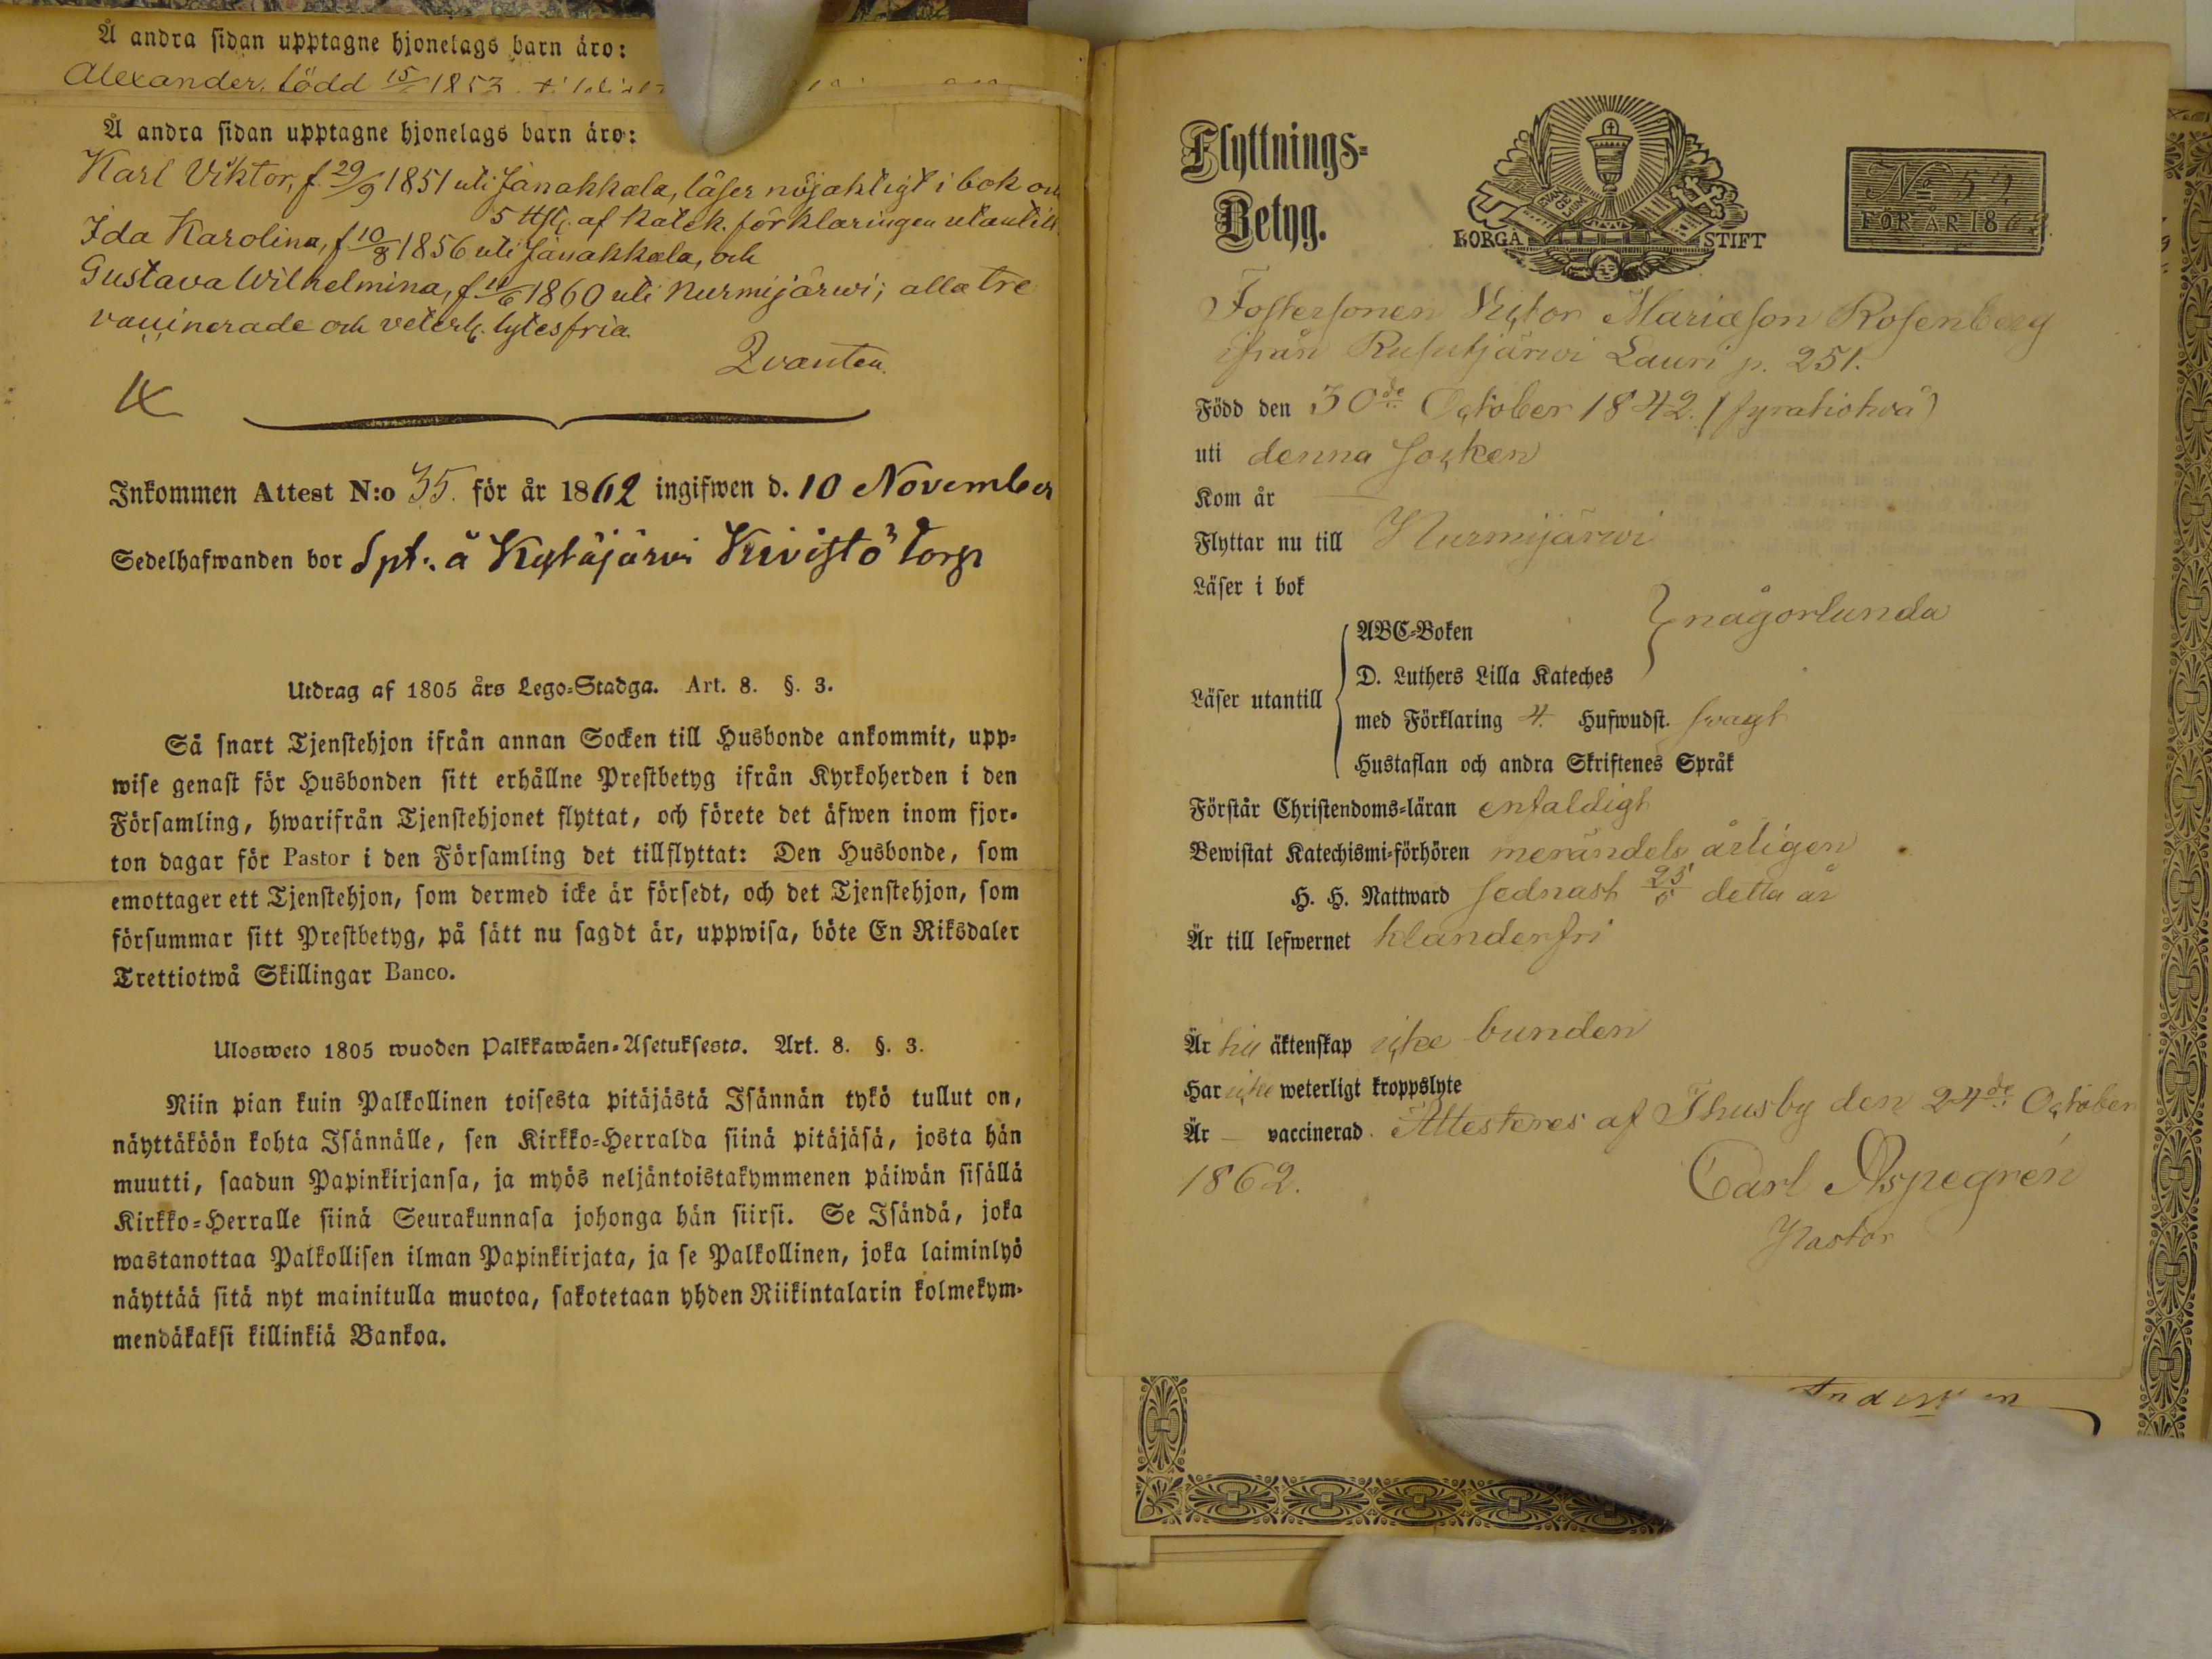 Å andra sidan upptagne hjonelags barn äro:
Alexander, född 15/ 1853
Å andra sidan upptagne hjonelags barn äro:
Karl Viktor, f. 29/9 1851 uti Janakkala, läser nöjaktigt i bok och
5 Hfst. af Katek. förklaringen utantill
Ida Karolina, f 10/8 1856 uti Janakkala, och
Gustava Wilhelmina, f 11/6 1860 uti Nurmijärwi; alla tre
vaccinerade och veterl. lytesfria.
Zvanten.
Inkommen Attest N:o 35. för år 1862 ingifwen d. 10 November
Sedelhafwanden bor Spt: å Kytäjärwi Kivistö torp
Utdrag af 1805 års Lego-Stadga. Art. 8. §. 3.
Så snart Tjenstehjon ifrån annan Socken till Husbonde ankommit, upp-
wise genast för Husbonden sitt erhållne Prestbetyg ifrån Kyrkoherden i den
Församling, hwarifrån Tjenstehjonet flyttat, och förete det äfwen inom fjor-
ton dagar för Pastor i den Församling det tillflyttat: Den Husbonde, som
emottager ett Tjenstehjon, som dermed icke är försedt, och det Tjenstehjon, som
försummar sitt Prestbetyg, på sätt nu sagdt är, uppwisa, böte En Riksdaler
Trettiotwå Skillingar Banco.
Ulosweto 1805 wuoden Palkkawäen-Asetuksesta. Art. 8. §. 3.
Niin pian kuin Palkollinen toisesta pitäjästä Isännän tykö tullut on,
näyttäköön kohta Isännälle, sen Kirkko-Herralda siinä pitäjäsä, josta hän
muutti, saadun Papinkirjansa, ja myös neljäntoistakymmenen päiwän sisällä
Kirkko-Herralle siinä Seurakunnasa johonga hän siirsi. Se Isändä, joka
wastanottaa Palkollisen ilman Papinkirjata, ja se Palkollinen, joka laiminlyö
näyttää sitä nyt mainitulla muotoa, sakotetaan yhden Riikintalarin kolmekym-
mendäkaksi killinkiä Bankoa.
Flyttnings-
Betyg.
EVAN
GE
LIUM
BORGÅ STIFT
No 59.
FÖR ÅR 1862.
Fostersonen Victor Mariæson Rosenberg
ifrån Rusutjärwi Lauri p. 251.
Född den 30de October 1842. (fyratiotwå)
uti denna Socken
Kom år —
Flyttar nu till Nurmijärwi
Läser i bok
ABC-Boken
någorlunda
D. Luthers Lilla Kateches
Läser utantill
med Förklaring 4. Hufwudst. swagt
Hustaflan och andra Skriftenes Språk
Förstår Christendoms-läran enfaldigt
Bewistat Katechismi-förhören merändels årligen
H. H. Nattward sednast 25/5 detta år
Är till lefwernet klanderfri
Är till äktenskap icke bunden
Har icke weterligt kroppslyte
Är — vaccinerad. Attesteres af Thusby den 24de October
1862.
Carl Aspegrén
Pastor